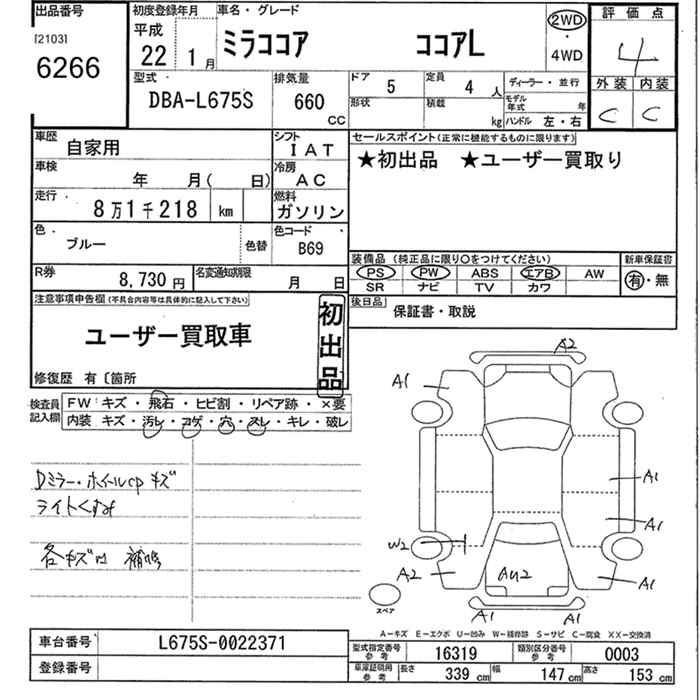 出品番号
[2103]
6266
初度登録年月
平成
22 年 1 月
車名・グレード
ミラココア ココアL
2WD
・
4WD
評価点
4
外装 内装
C C
型式
DBA-L675S
排気量
660
CC
ドア 5
定員 4 人
形状
積載 kg
ディーラー・並行
モデル年式 年
ハンドル 左・右
車歴
自家用
シフト
IAT
車検
年 月( 日)
冷房
AC
走行
8万1千218 km
燃料
ガソリン
色
ブルー
色替
色コード
B69
R券
8,730 円
名変通知期限
月 日
セールスポイント(正常に機能するものに限ります)
★初出品 ★ユーザー買取り
装備品(純正品に限り○をつけてください)
PS PW ABS エアB AW
SR ナビ TV カワ
新車保証書
有・無
後日品
保証書・取説
注意事項申告欄(不具合内容等は具体的に記入して下さい)
ユーザー買取車
初出品
修復歴 有〔箇所
検査員記入欄
FW:キズ・飛石・ヒビ割・リペア跡・×要
内装:キズ・汚レ・コゲ・穴・スレ・キレ・破レ
Dミラー・ホイールcp キズ
ライトくすみ
各キズ 補修
A2
A1
A1
A1
W2
A2
AU2
A1
A1
A1
スペア
A-キズ E-エクボ U-凹み W-補修跡 S-サビ C-腐食 XX-交換済
車台番号
L675S-0022371
登録番号
型式指定番号参考
16319
類別区分番号参考
0003
車庫証明用参考
長さ 339 cm
幅 147 cm
高さ 153 cm